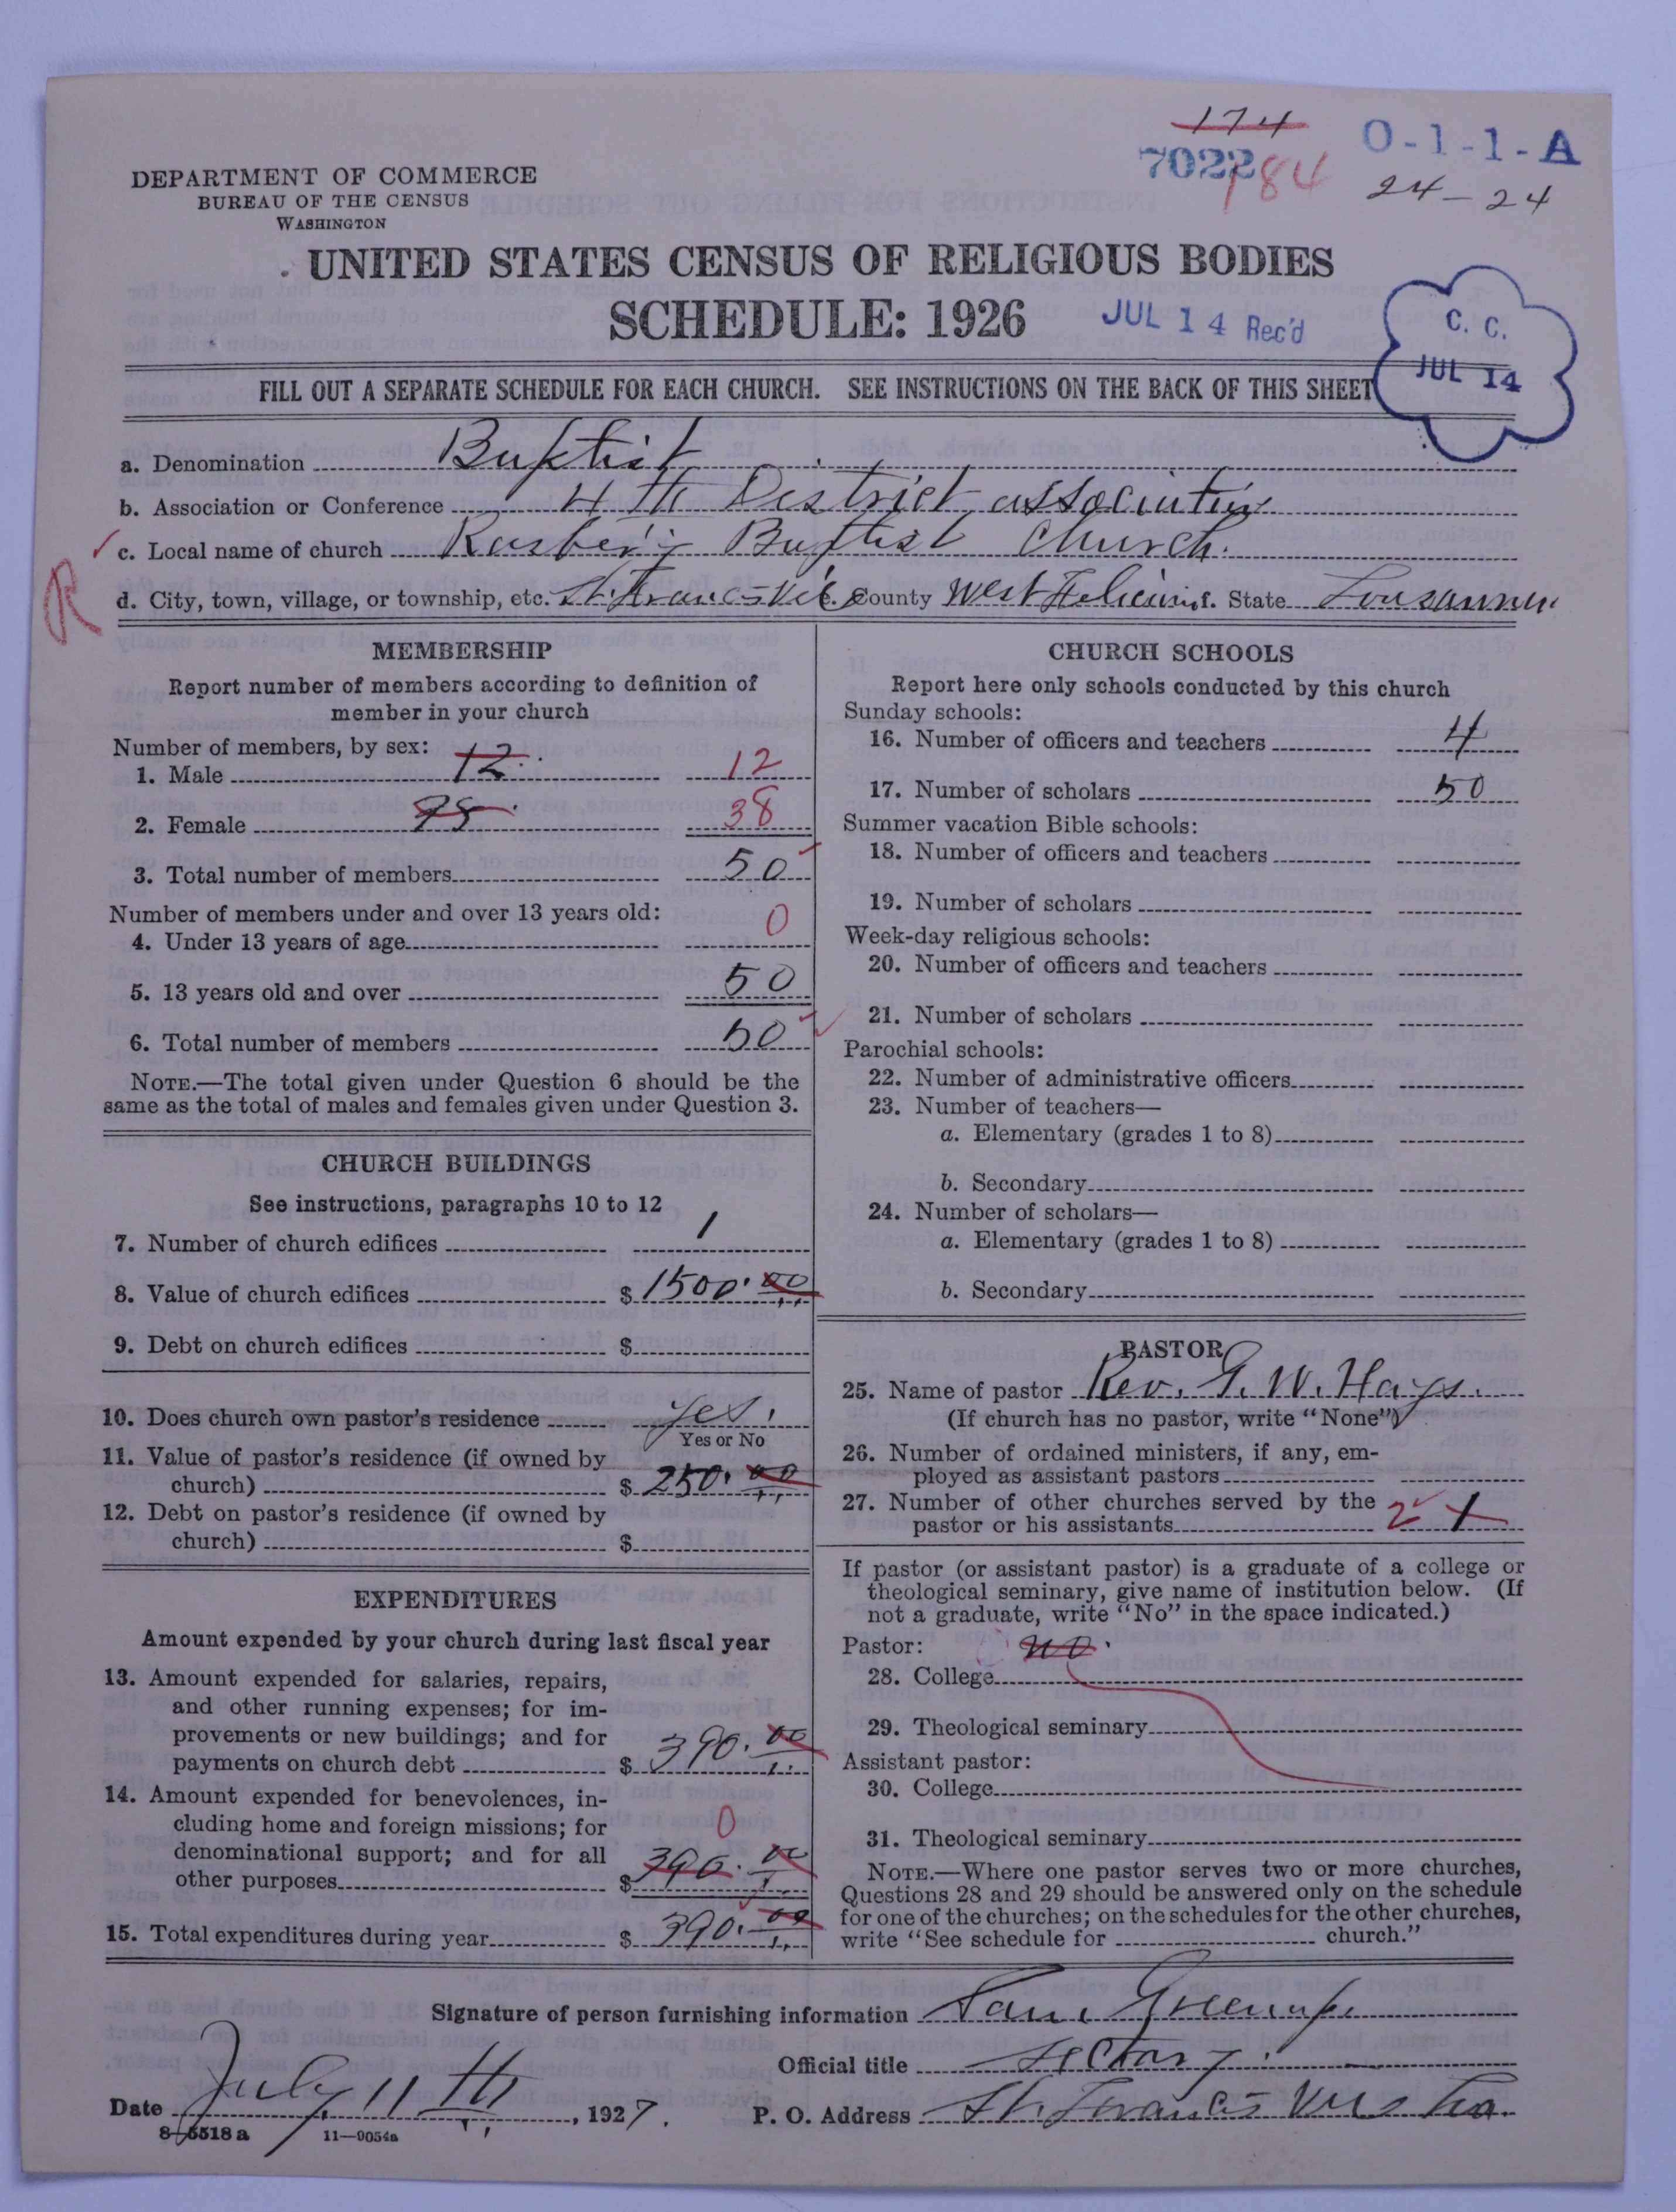 174
7022 184 O-1-1-A
24-24
DEPARTMENT OF COMMERCE
BUREAU OF THE CENSUS
WASHINGTON
UNITED STATES CENSUS OF RELIGIOUS BODIES
SCHEDULE: 1926
JUL 14 Rec'd
C. C.
JUL 14
FILL OUT A SEPARATE SCHEDULE FOR EACH CHURCH. SEE INSTRUCTIONS ON THE BACK OF THIS SHEET
a. Denomination Baptist
b. Association or Conference 4th District association
c. Local name of church Baptist Church.
R
d. City, town, village, or township, etc. St. Francisville e. County West Feliciana f. State
MEMBERSHIP
Report number of members according to definition of
member in your church
Number of members, by sex:
1. Male 12 12
2. Female 38
3. Total number of members 50
Number of members under and over 13 years old:
4. Under 13 years of age 0
5. 13 years old and over 50
6. Total number of members 50
NOTE.—The total given under Question 6 should be the
same as the total of males and females given under Question 3.
CHURCH BUILDINGS
See instructions, paragraphs 10 to 12
7. Number of church edifices 1
8. Value of church edifices $ 1500.00
9. Debt on church edifices $
10. Does church own pastor's residence yes.
Yes or No
11. Value of pastor's residence (if owned by
church) $ 250.00
12. Debt on pastor's residence (if owned by
church) $
EXPENDITURES
Amount expended by your church during last fiscal year
13. Amount expended for salaries, repairs,
and other running expenses; for im-
provements or new buildings; and for
payments on church debt $ 390.00
14. Amount expended for benevolences, in-
cluding home and foreign missions; for 0
denominational support; and for all
other purposes $ 390.00
15. Total expenditures during year $ 390.00
CHURCH SCHOOLS
Report here only schools conducted by this church
Sunday schools:
16. Number of officers and teachers 4
17. Number of scholars 50
Summer vacation Bible schools:
18. Number of officers and teachers
19. Number of scholars
Week-day religious schools:
20. Number of officers and teachers
21. Number of scholars
Parochial schools:
22. Number of administrative officers
23. Number of teachers—
a. Elementary (grades 1 to 8)
b. Secondary
24. Number of scholars—
a. Elementary (grades 1 to 8)
b. Secondary
PASTOR
25. Name of pastor Rev. G. W. Hays.
(If church has no pastor, write "None")
26. Number of ordained ministers, if any, em-
ployed as assistant pastors
27. Number of other churches served by the
pastor or his assistants 2 1
If pastor (or assistant pastor) is a graduate of a college or
theological seminary, give name of institution below. (If
not a graduate, write "No" in the space indicated.)
Pastor: no.
28. College
29. Theological seminary
Assistant pastor:
30. College
31. Theological seminary
NOTE.—Where one pastor serves two or more churches,
Questions 28 and 29 should be answered only on the schedule
for one of the churches; on the schedules for the other churches,
write "See schedule for church."
Signature of person furnishing information Sam
Official title
Date July 11th, 1927. P. O. Address St. Francis
8-5518 a 11—9054a